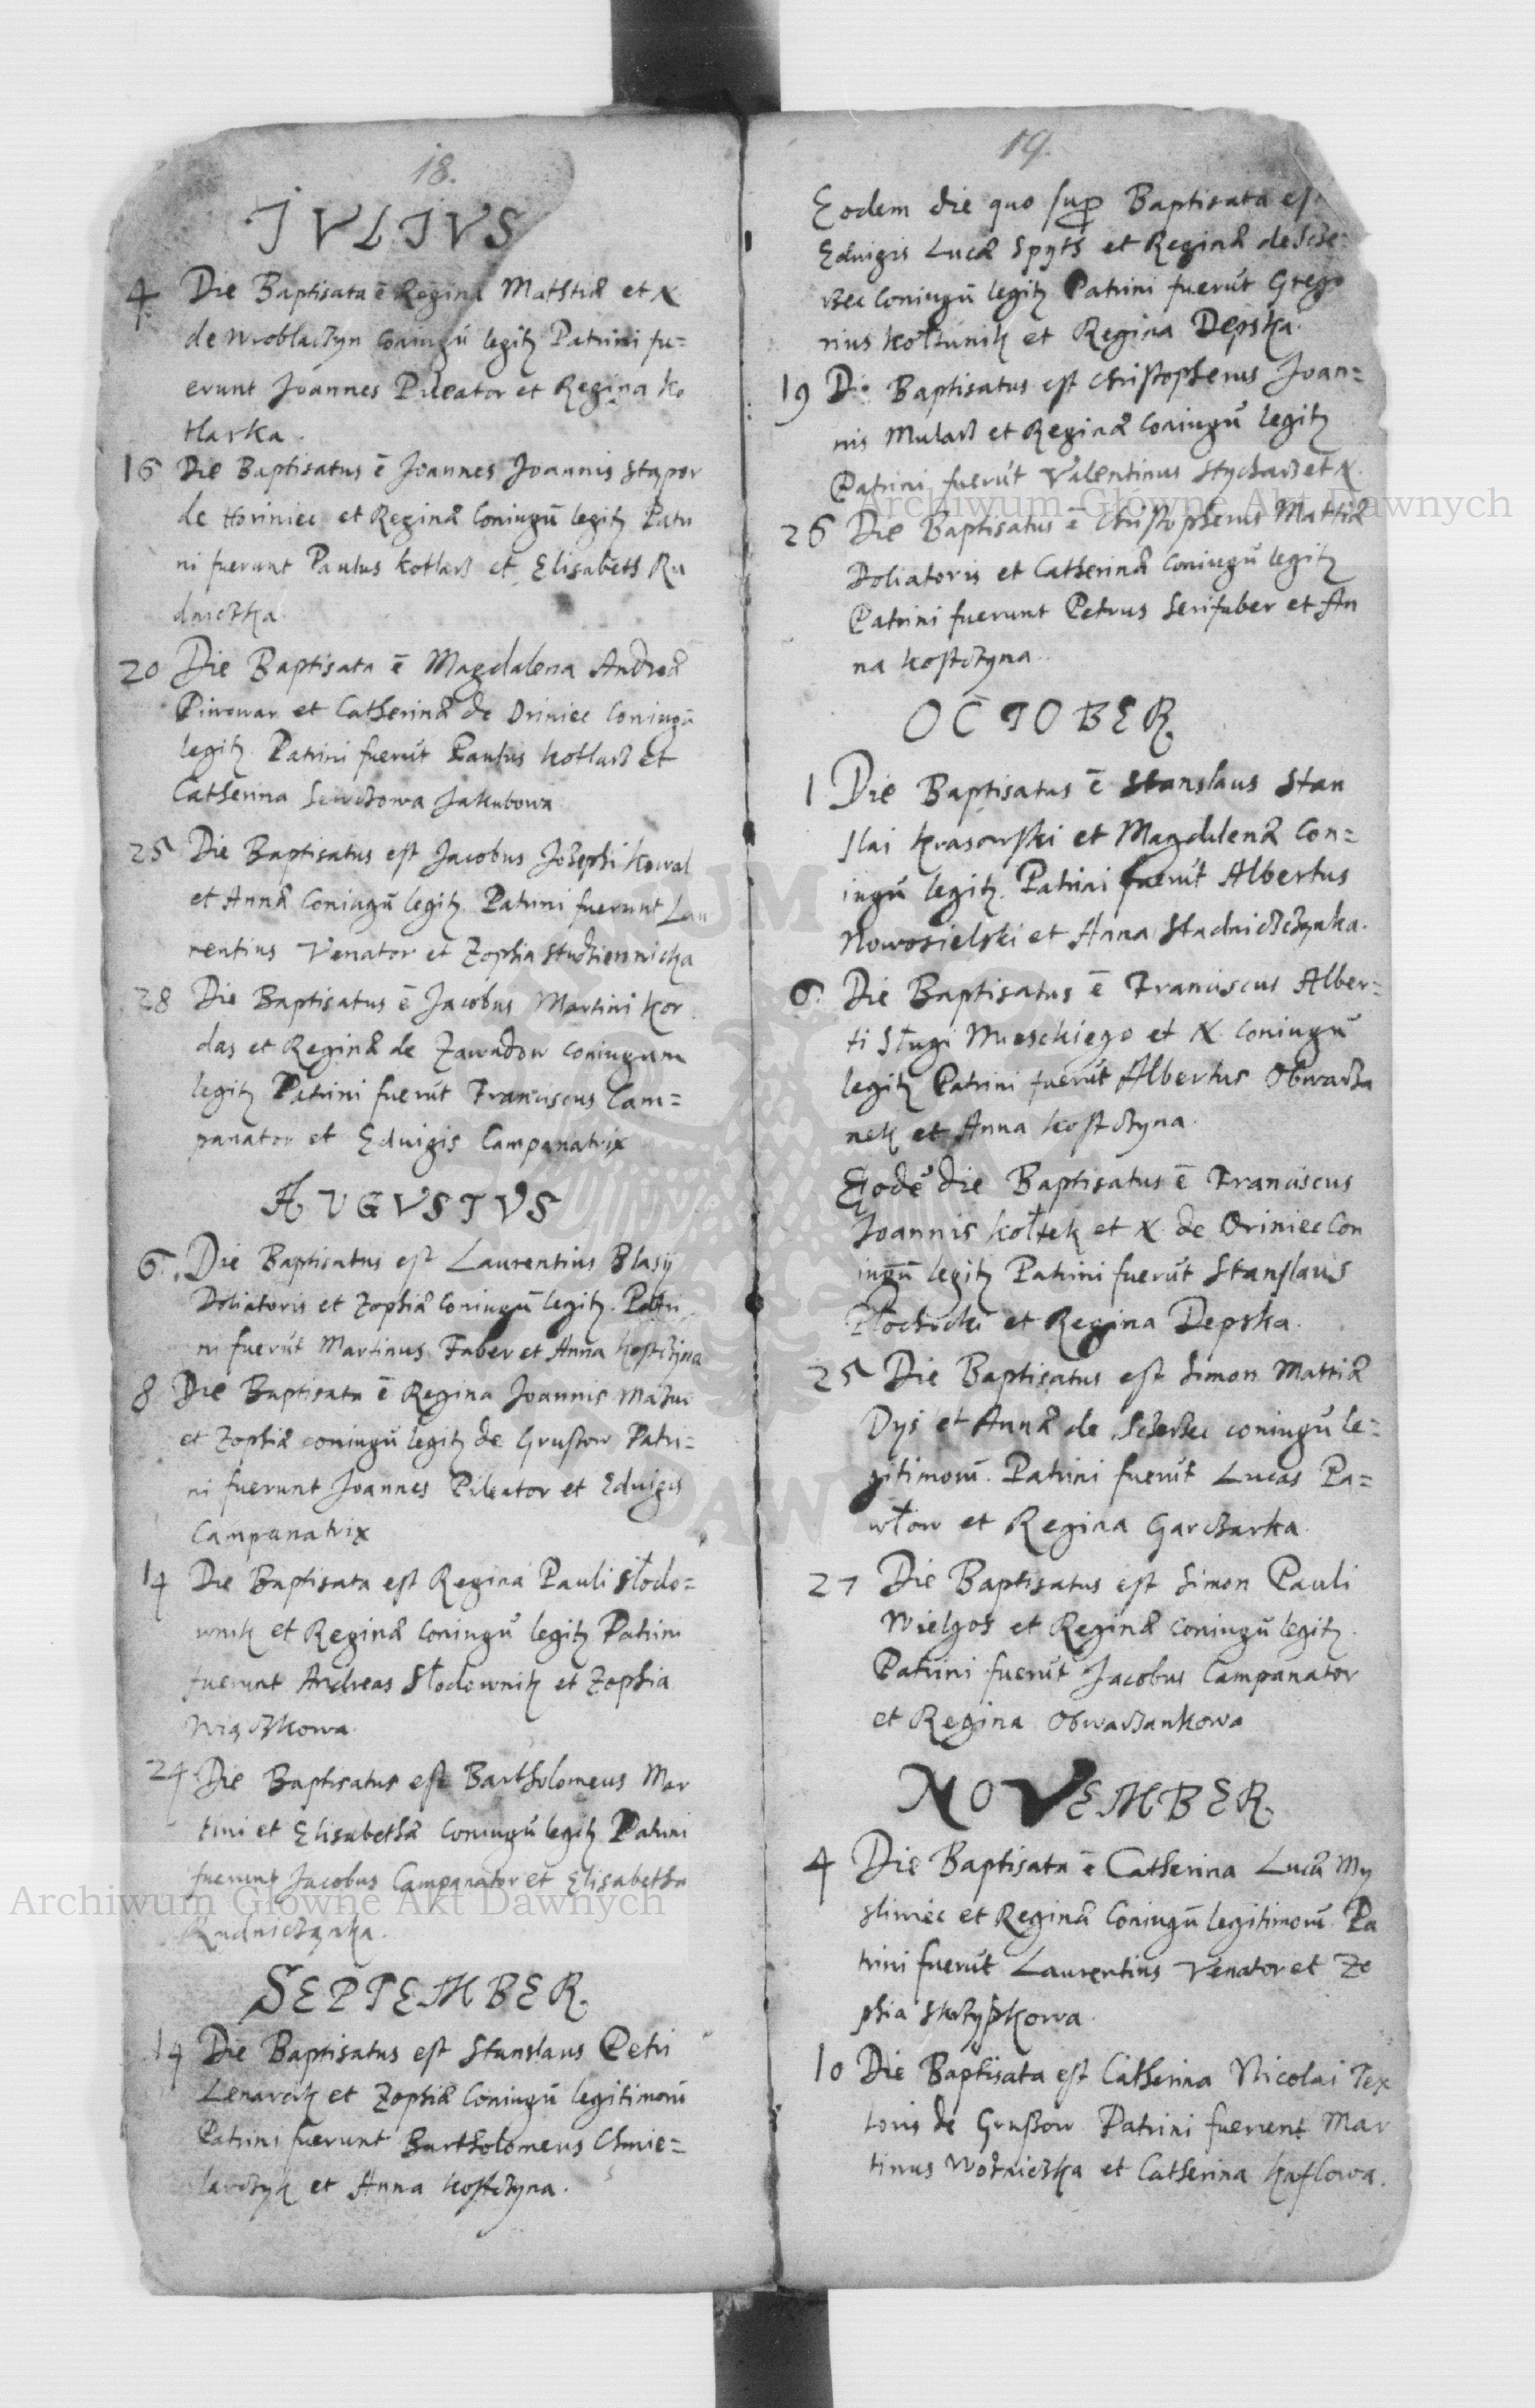 18.
IVLIVS
4 Die Baptisata ē Regina Mathiæ et X
de Wroblaczyn coniugū legitȝ Patrini fu=
erunt Joannes Pileator et Regina Ko
tlarka.
16 Die Baptisatus ē Joannes Joannis Stapor
de Horiniec et Reginæ Coniugū legitȝ Patri
ni fuerunt Paulus Kotlarz et Elisabeth Ru
dniczka.
20 Die Baptisata ē Magdalena Andreæ
Piwowar et Catherinæ de Oriniec Coniugū
legitȝ. Patrini fuerūt Paulus Kotlarz et
Catherina Sewczowa Jakubowa
25 Die Baptisatus est Jacobus Josephi Kowal
et Annæ Coniugū legitȝ. Patrini fuerunt Lau
rentius Venator et Zophia Studziennicka
28 Die Baptisatus ē Jacobus Martini Kor
das et Reginæ de Zawadow coniugum
legitȝ Patrini fuerūt Franciscus Cam=
panator et Eduigis Campanatrix
AVGVSTVS
6. Die Baptisatus est Laurentius Blasij
Doliatoris et Zophiæ coniugū legitȝ. Patri
ni fuerūt Martinus Faber et Anna Kostczyna
8 Die Baptisata ē Regina Joannis Mazur
et Zophiæ coniugū legitȝ de Grußow Patri=
ni fuerunt Joannes Pileator et Eduigis
Campanatrix
14 Die Baptisata est Regina Pauli Słodo=
wnik et Reginæ Coniugū legitȝ Patrini
fuerunt Andreas Słodownik et Zophia
Wiączkowa.
24 Die Baptisatus est Bartholomeus Mar
tini et Elisabethæ Coniugū legitȝ Patrini
fuerunt Jacobus Campanator et Elisabetha
Rudniczanka.
SEPTEMBER.
14 Die Baptisatus est Stanslaus Petri
Lenarcik et Zophiæ Coniugū legitimorū
Patrini fuerunt Bartholomeus Chmie=
larczyk et Anna Kostczyna.
19.
Eodem die quo sup Baptisata est
Eduigis Lucæ Spyts et Reginæ de
Coniugū legitȝ Patrini fuerūt Grego
rius Kołtunik et Regina Depska.
19 Die Baptisatus est Christopherus Joan=
nis Mularz et Reginæ Coniugū legitȝ
Patrini fuerūt Valentinus Stycharz et X.
26 Die Baptisatus ē Christopherus Mattiæ
Doliatoris et Catherinæ Coniugū legitȝ
Patrini fuerunt Petrus Serifaber et An
na Kostczyna.
OCTOBER.
1 Die Baptisatus ē Stanslaus Stan
slai Krasowski et Magdalenæ Con=
iugū legitȝ. Patrini fuerūt Albertus
Nowosielski et Anna Stadniczczynka.
6. Die Baptisatus ē Franciscus Alber=
ti Sługi Mieschiego et X. coniugū
legitȝ Patrini fuerūt Albertus Obwarza
nek et Anna Kostczyna.
Eodē die Baptisatus ē Franciscus
Joannis Kołtek et X. de Oriniec Con
iugū legitȝ Patrini fuerūt Stanslaus
Płochicki et Regina Depska.
25 Die Baptisatus est Simon Mattiæ
Dys et Annæ de coniugū le=
gitimorū. Patrini fuerūt Lucas Pa=
włow et Regina Garczarka.
27 Die Baptisatus est Simon Pauli
Wielgos et Reginæ coniugū legitȝ.
Patrini fuerūt Jacobus Campanator
et Regina Obwarzankowa
NOVEMBER.
4 Die Baptisata ē Catherina Lucæ My
sliwiec et Reginæ Coniugū legitimorū Pa
trini fuerūt Laurentius Venator et Zo
phia Skrzypkowa.
10 Die Baptisata est Catherina Nicolai Tex
toris de Grußow Patrini fuerunt Mar
tinus Wozniczka et Catherina Kaflowa.
Archiwum Główne Akt Dawnych
Archiwum Główne Akt Dawnych